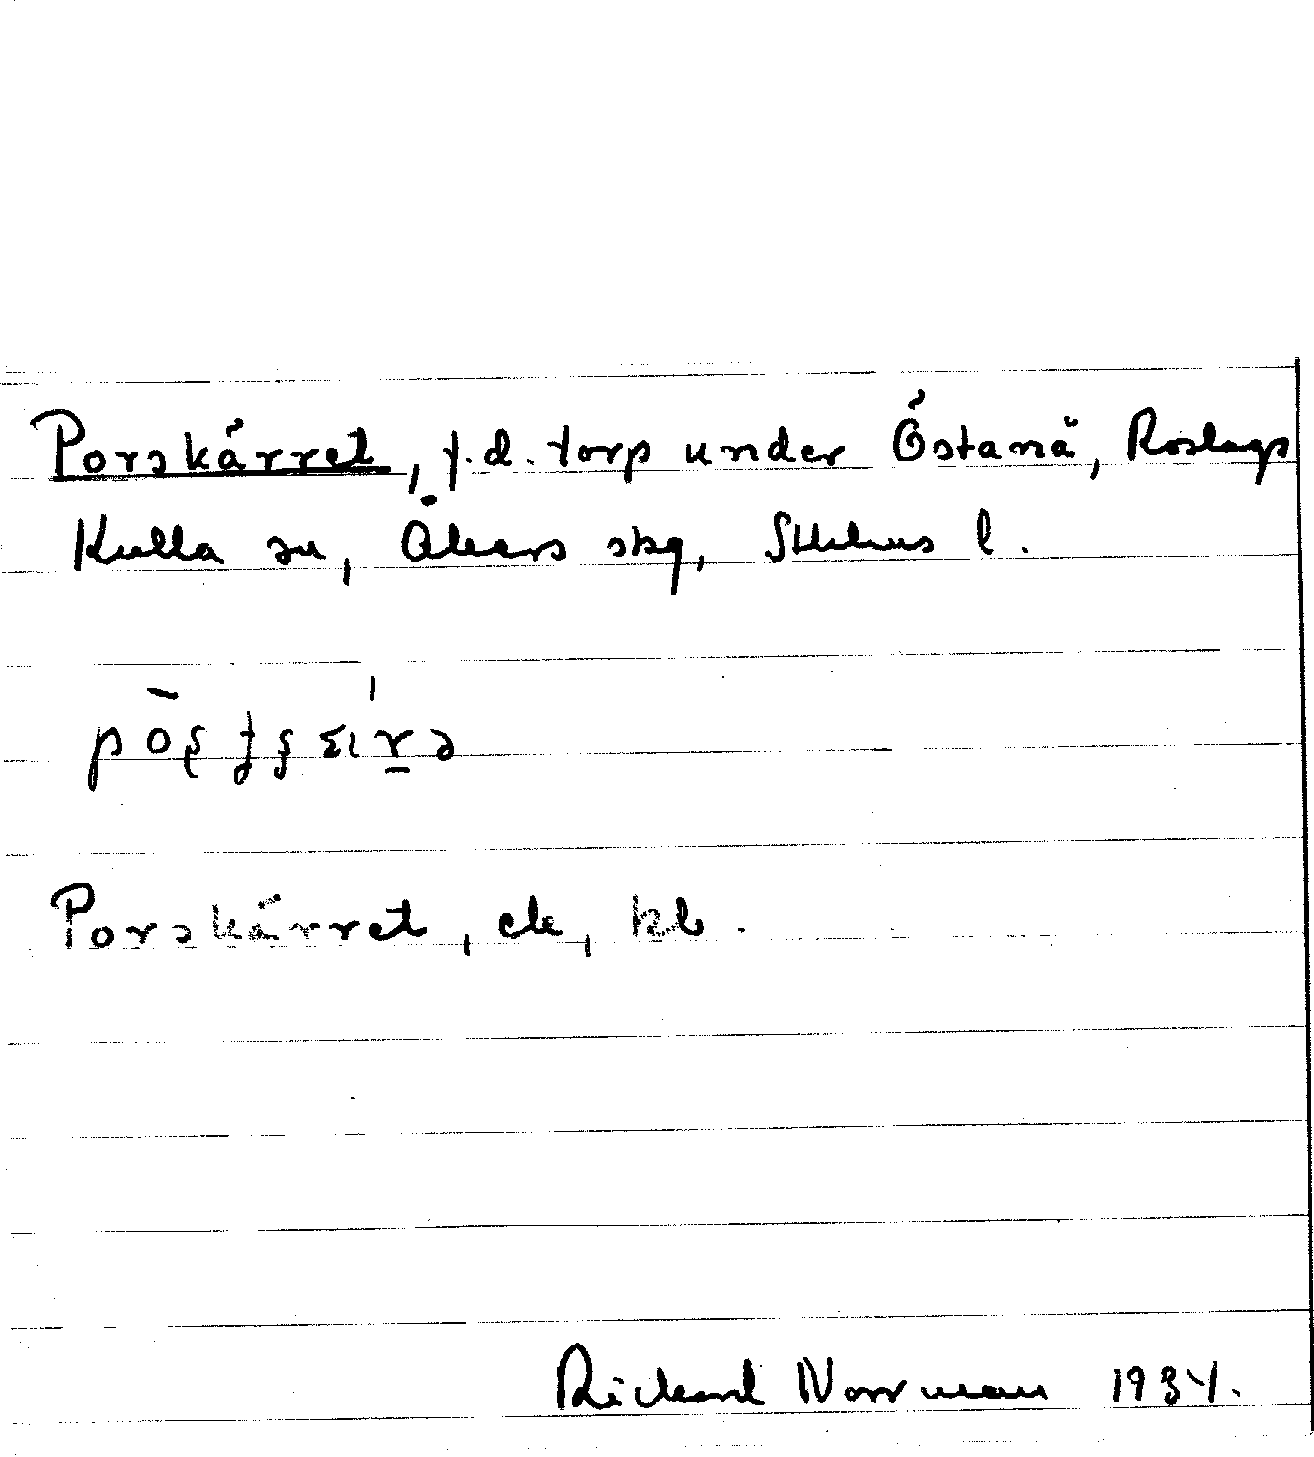 Porskärret, f.d. torp under Östanå, Roslags
Kulla sn, Åkers skg, Sthlms l.
Porskärret, ek, kb.
Rickard Norrman 1934.